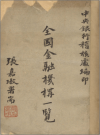 中央銀行稽核處編印
全國金融機構一覽
張嘉璈署